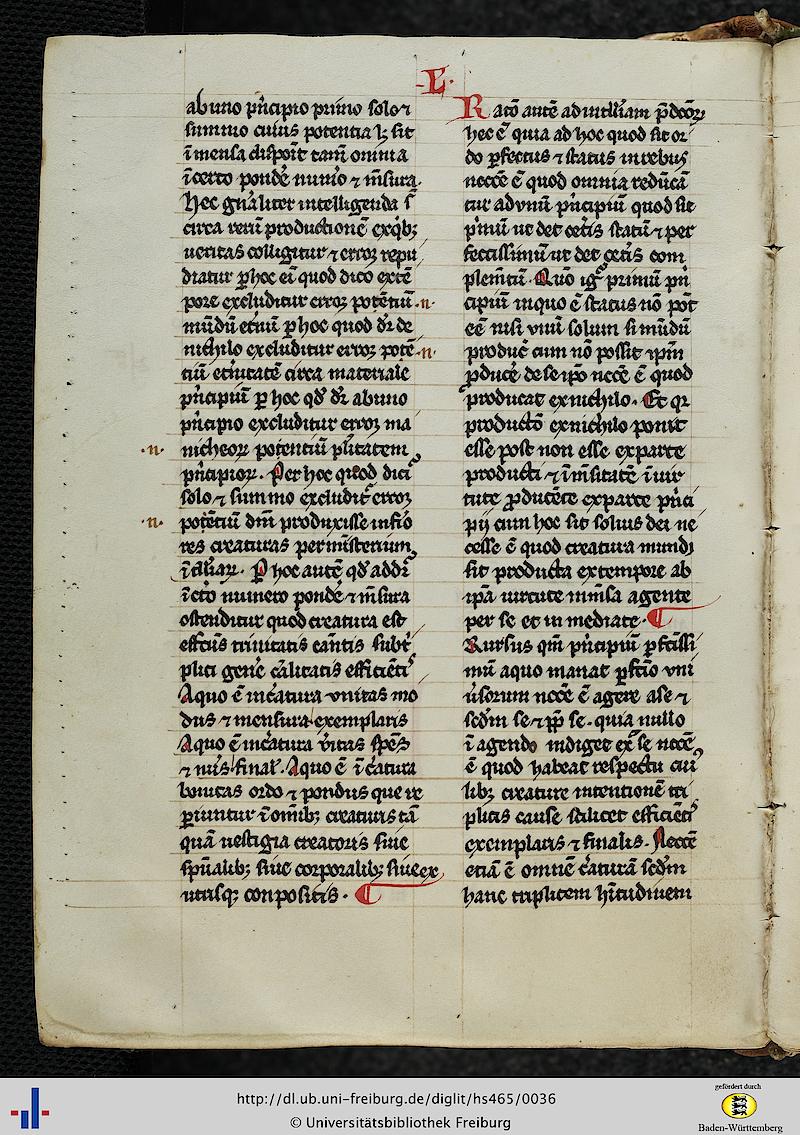 ·L·
ab uno p̄ncipio primo solo ⁊
summo cuius potentia lꝫ sit
īmensa disponit tam̄ omnia
ī certo pondē num̄o ⁊ m̄sura.
Hec gn̄aliter intelligenda s̄t
circa rerū productionē ex qͥbꝫ
ueritas colligitur ⁊ error repu
diatur ꝑ hoc eī quod dico ex tē
pore excluditur error potētiū ·n·
mūdū et̄nū ꝑ hoc quod dr̄ de
nichilo excluditur error potē ·n·
tiū et̄nitatē circa materiale
p̄ncipiū ꝑ hoc qd̄ dr̄ ab uno
p̄ncipio excluditur error ma
·n· nicheoꝝ potentiū pl̄itatem
p̄ncipioꝝ. Per hoc quod dicī
solo ⁊ summo excludit̄ error
·n· potētiū dm̄ produxisse infio
res creaturas per mīsterium
ītelliār̄. ꝑ hoc autē qd̄ addr̄
ī c̄to numero pondē ⁊ m̄sura
ostenditur quod creatura est
effc̄us trinitatis cāntis sub t̄
plici genē cālitatis efficiētī
A quo ē in c̄atura vnitas mo
dus ⁊ mensura exemplaris
A quo ē in c̄atura v̄itas spēs
⁊ nūs final̄. A quo ē ī c̄atura
bonitas ordo ⁊ pondus que re
ꝑiuntur ī om̄ibꝫ creaturis tā
quā uestigia creatoris siue
spūalibꝫ siue corporalibꝫ siue ex
utrisqꝫ conpositis. ¶
Ratō autē ad intelliam p̄dc̄oꝝ
hec ē quia ad hoc quod sit or
do ꝑfectus ⁊ status in rebus
necc̄e ē quod omnia reducā
tur ad vnū p̄ncipiū quod sit
p̄mū ut det cet̄is statū ⁊ per
fectissimū ut det cet̄is com
plem̄tū. Quō igͬ primū p̄n
cipiū in quo ē status nō pot̄
eē nisi vnū solum si mūdū
producͭ cum nō possit ip̄m
ꝓducē de se ip̄o necc̄e ē quod
producat ex nichilo. Et qr
productō ex nichilo ponit
esse post non esse ex parte
producti ⁊ īm̄sitatē ī uir
tute ꝓducēte ex parte p̄nci
pij cum hoc sit solius dei ne
cesse ē quod creatura mundi
sit producta ex tempore ab
ip̄a uirtute inm̄sa agente
per se et in mediate. ¶
Rursus qm̄ p̄ncipiū ꝑfc̄issi
mū a quo manat ꝑfc̄io vni
ūsorum necc̄e ē agere a se ⁊
scd̄m se ⁊ ꝓpt̄ se. quia nullo
ī agendo indiget ext̄ se necc̄e
ē quod habeat respectu cui
libꝫ creature intentionē tri
plicis cause scilicet efficiētis
exemplaris ⁊ finalis. Necc̄e
etiā ē omnē c̄aturā scd̄m
hanc triplicem hītudinem
http://dl.ub.uni-freiburg.de/diglit/hs465/0036
© Universitätsbibliothek Freiburg
gefördert durch
Baden-Württemberg